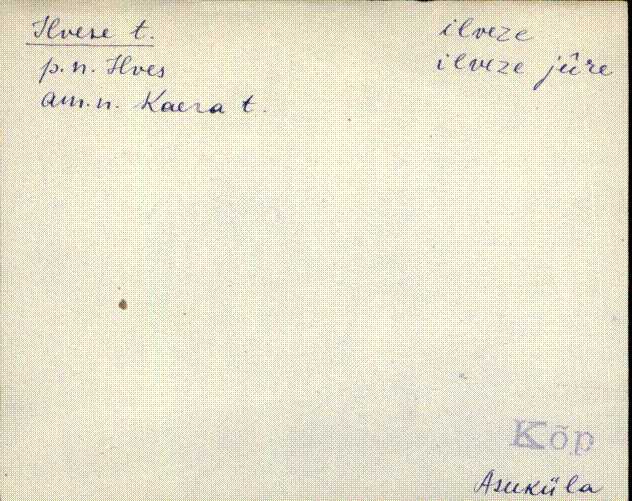 Ilvese t.
ilveze
p.n. Ilves
ilveze jûre
am.n. Kaera t.
Kõp
Asuküla